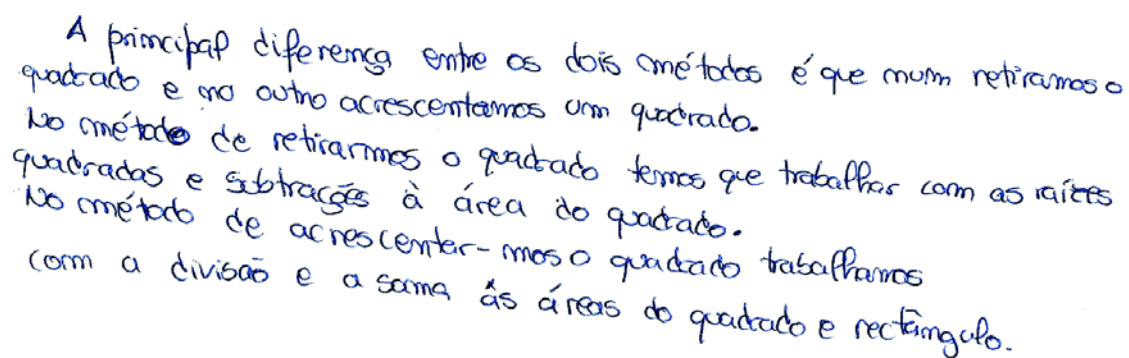 A principal diferença entre os dois métodos é que num retiramos o
quadrado e no outro acrescentamos um quadrado.
No método de retirarmos o quadrado temos que trabalhar com as raízes
quadradas e subtrações à área do quadrado.
No método de acrescentar-mos o quadrado trabalhamos
com a divisão e a soma às áreas do quadrado e rectângulo.